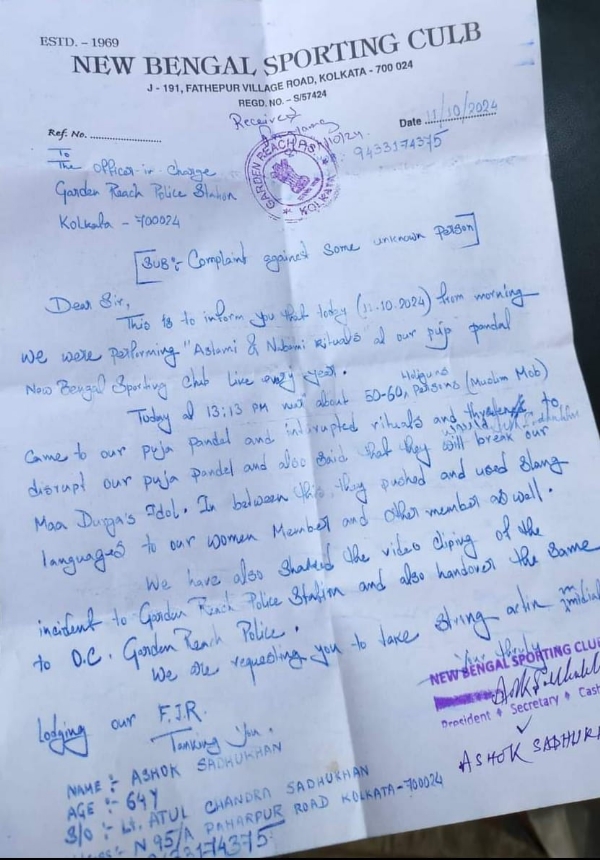 ESTD. – 1969
NEW BENGAL SPORTING CULB
J - 191, FATHEPUR VILLAGE ROAD, KOLKATA - 700 024
REGD. NO. – S/57424
Received
Ref. No. ....................
Date 11/10/2024
9433174375
GARDEN REACH P.S. KOLKATA
To
The Officer-in-Charge
Garden Reach Police Station
Kolkata - 700024
[SUB:- Complaint against some unknown person]
Dear Sir,
This is to inform you that today (11-10-2024) from morning
we were performing "Astami & Nabami rituals" at our puja pandal
New Bengal Sporting Club like every year.
Today at 13:13 PM about 50-60 Persons (Muslim Mob)
came to our puja pandel and interrupted rituals and to
disrupt our puja pandel and also said that they will break our
Maa Durga's Idol. In between this, they pushed and used slang
languages to our women Member and other member as well.
We have also shared the video cliping of the
incident to Garden Reach Police Station and also handover the same
to O.C. Garden Reach Police.
We are requesting you to take string
Lodging our F.I.R.
Tanking You.
NEW BENGAL SPORTING CLUB
President Secretary
ASHOK
NAME :- ASHOK SADHUKHAN
AGE :- 64Y
S/O :- Lt. ATUL CHANDRA SADHUKHAN
N 95/A PAHARPUR ROAD KOLKATA-700024